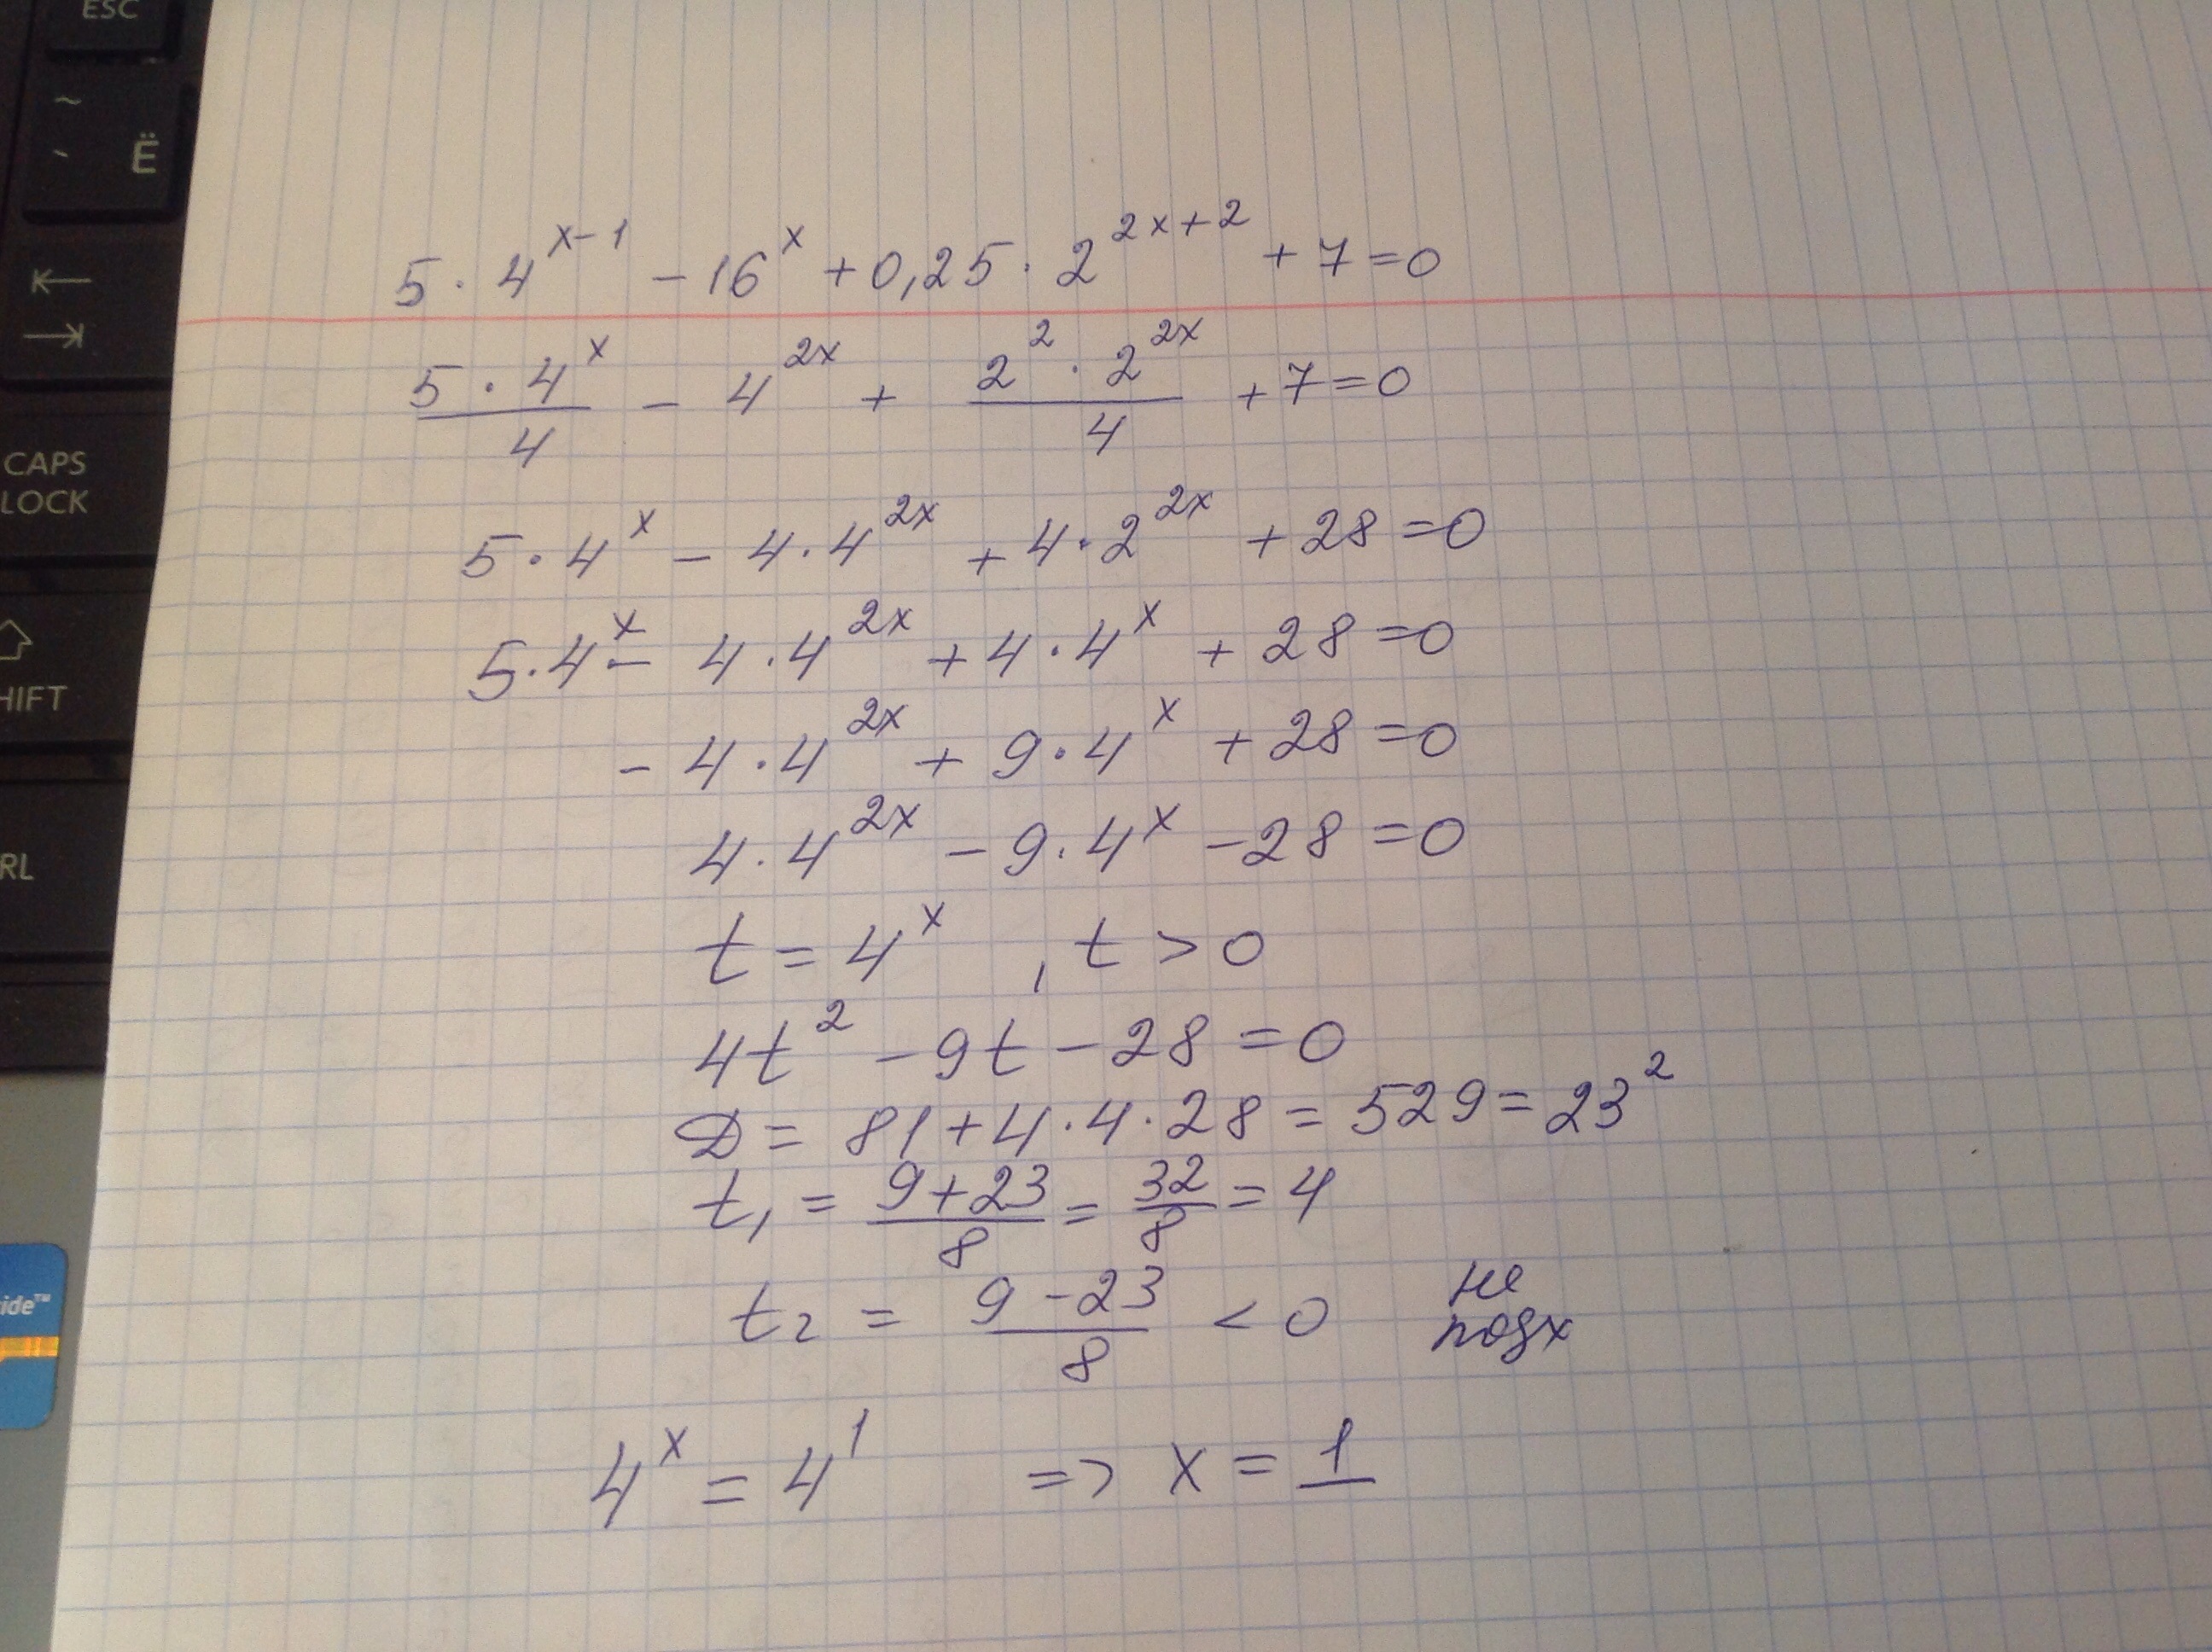 ESC
~
` Ë
CAPS
LOCK
HIFT
RL
ide™
5 · 4^{x-1} - 16^x + 0,25 · 2^{2x+2} + 7 = 0
\frac{5 · 4^x}{4} - 4^{2x} + \frac{2^2 · 2^{2x}}{4} + 7 = 0
5 · 4^x - 4 · 4^{2x} + 4 · 2^{2x} + 28 = 0
5 · 4^x - 4 · 4^{2x} + 4 · 4^x + 28 = 0
- 4 · 4^{2x} + 9 · 4^x + 28 = 0
4 · 4^{2x} - 9 · 4^x - 28 = 0
t = 4^x , t > 0
4t^2 - 9t - 28 = 0
D = 81 + 4 · 4 · 28 = 529 = 23^2
t_1 = \frac{9+23}{8} = \frac{32}{8} = 4
t_2 = \frac{9-23}{8} < 0 не подх
4^x = 4^1 => x = 1